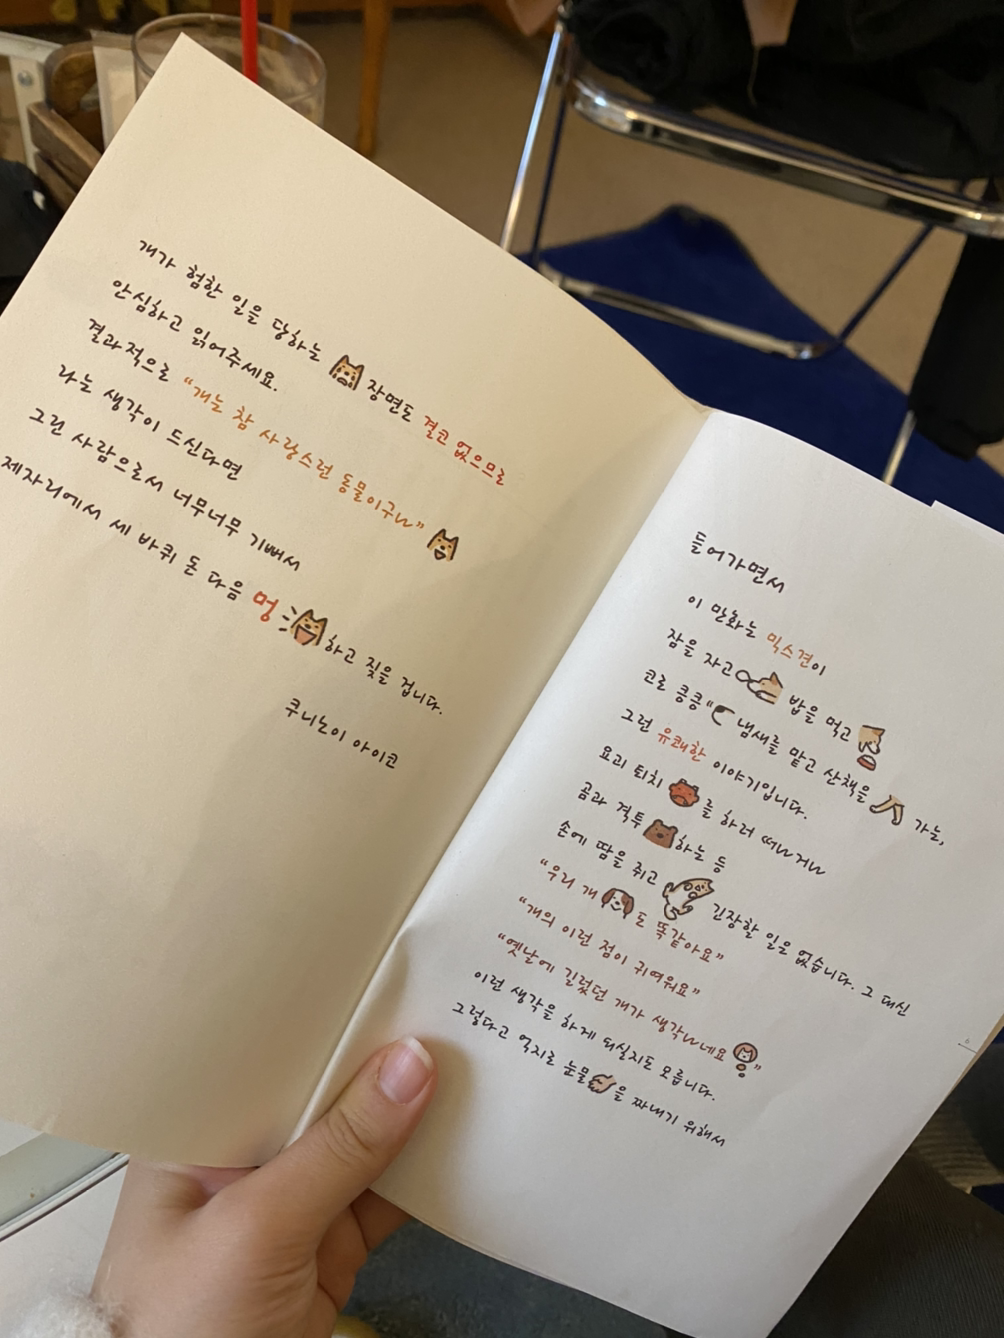 개가 험한 일을 당하는 장면도 결코 없으므로
안심하고 읽어주세요.
결과적으로 “개는 참 사랑스런 동물이구나”
라는 생각이 드신다면
그린 사람으로서 너무너무 기뻐서
제자리에서 세 바퀴 돈 다음 멍 하고 짖을 겁니다.
쿠니노이 아이코
들어가면서
이 만화는 믹스견이
잠을 자고 밥을 먹고
코로 킁킁 냄새를 맡고 산책을 가는,
그런 유쾌한 이야기입니다.
요괴 퇴치를 하러 떠나거나
곰과 격투하는 등
손에 땀을 쥐고 긴장할 일은 없습니다. 그 대신
“우리 개도 똑같아요”
“개의 이런 점이 귀여워요”
“옛날에 길렀던 개가 생각나네요”
이런 생각을 하게 되실지도 모릅니다.
그렇다고 억지로 눈물을 짜내기 위해서
6